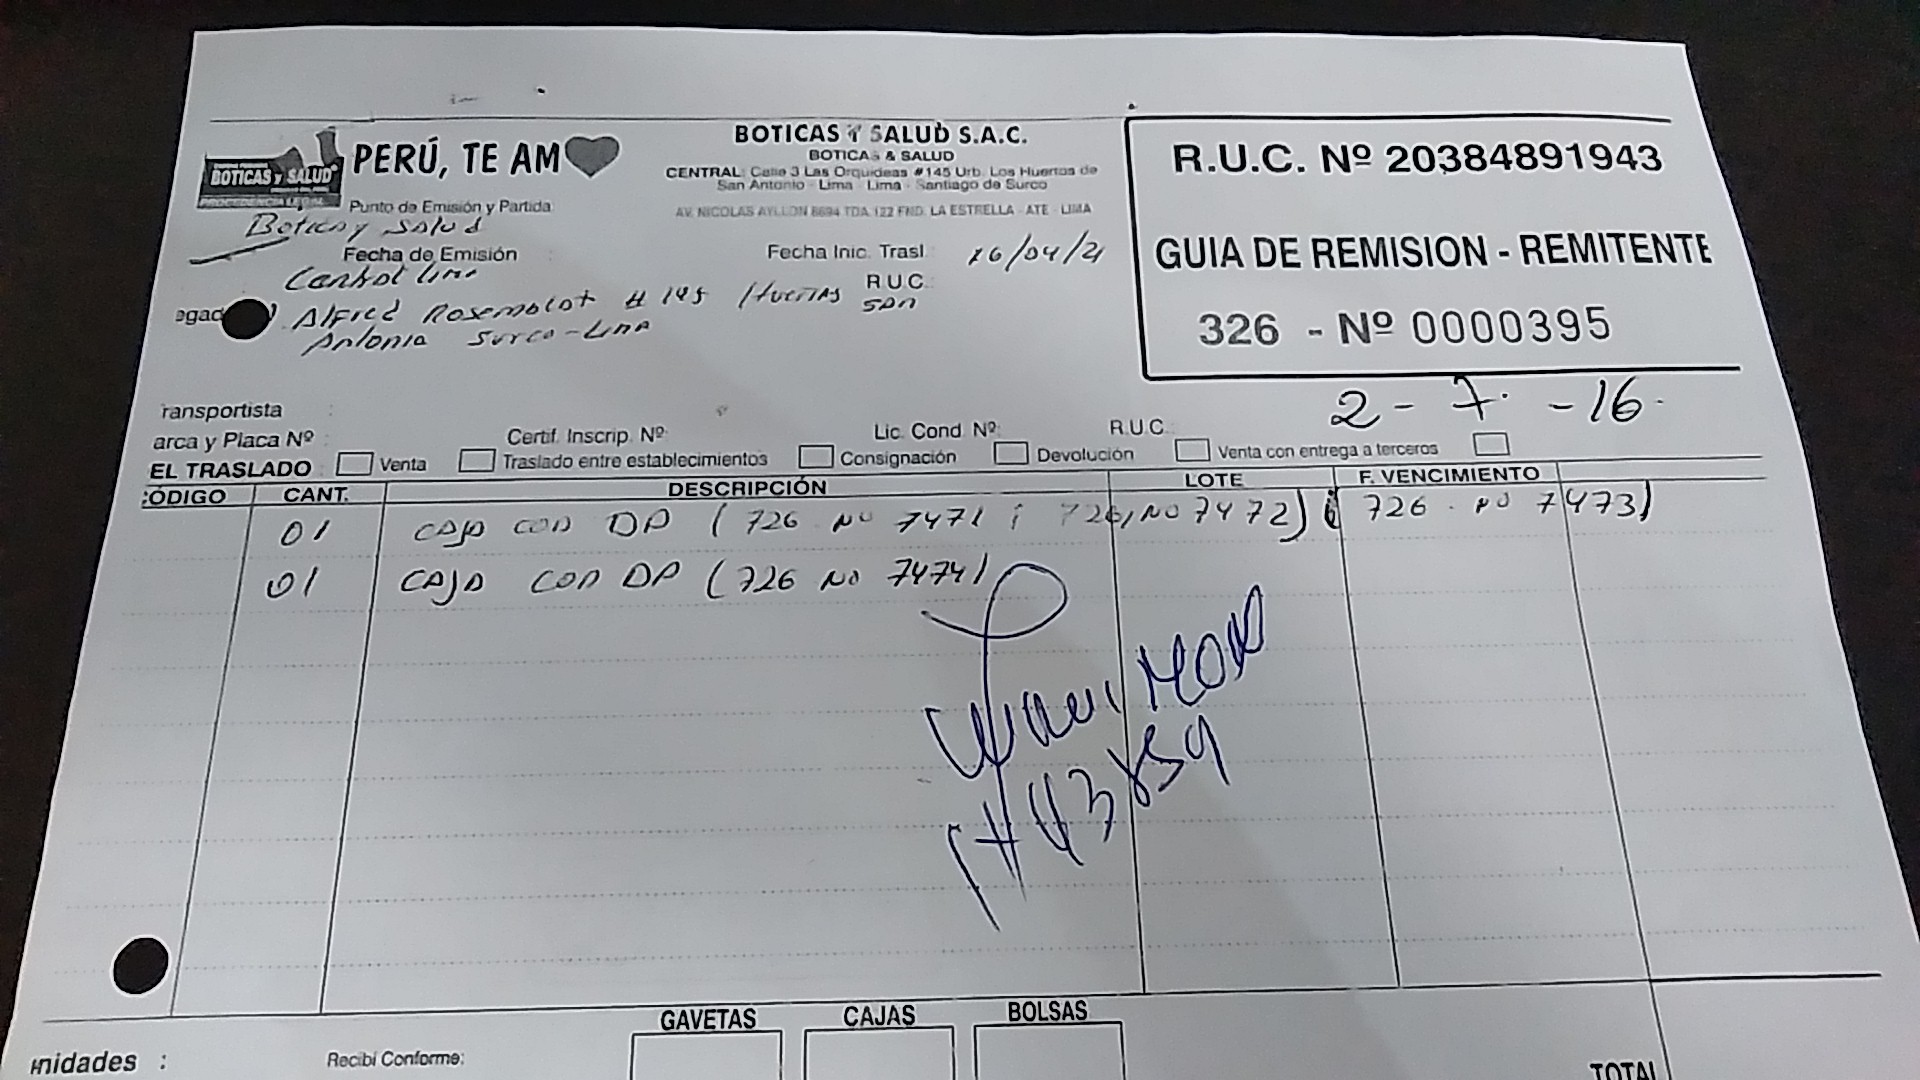 BOTICAS Y SALUD S.A.C.
BOTICAS & SALUD
CENTRAL: Calle 3 Las Orquideas #145 Urb. Los Huertos de
San Antonio - Lima - Lima - Santiago de Surco
AV. NICOLAS AYLLON 8694 TDA. 122 FND. LA ESTRELLA - ATE - LIMA
BOTICAS y SALUD
PERÚ, TE AM
R.U.C. Nº 20384891943
GUIA DE REMISION - REMITENTE
326 - Nº 0000395
Punto de Emisión y Partida
Boticas y Salud
Fecha de Emisión :
Fecha Inic. Trasl.: 16/04/21
Central Lima
R.U.C.:
egad
Alfred Rosemblot # 145 Huertas San
Antonio Surco-Lima
2 - 7 - 16
ransportista :
arca y Placa Nº :
Certif. Inscrip. Nº:
Lic. Cond. Nº:
R.U.C.:
EL TRASLADO : Venta Traslado entre establecimientos Consignación Devolución Venta con entrega a terceros
CÓDIGO CANT. DESCRIPCIÓN LOTE F. VENCIMIENTO
01 CAJA CON DP (726 No 7471 ; 726, No 7472) ; 726 - No 7473)
01 CAJA CON DP (726 No 7474)
GAVETAS CAJAS BOLSAS
nidades :
Recibí Conforme:
TOTAL